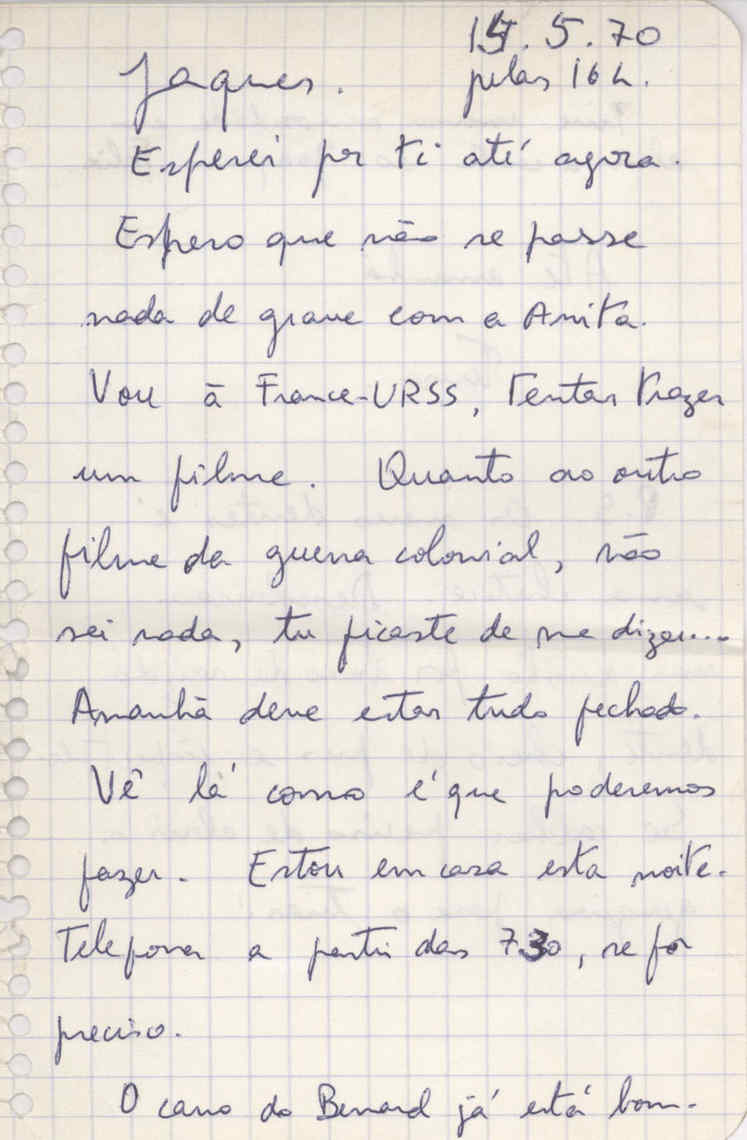 15.5.70
Jaques. pelas 16 h.
Esperei por ti até agora.
Espero que não se passe
nada de grave com a Anita.
Vou à France-URSS, tentar trazer
um filme. Quanto ao outro
filme da guerra colonial, não
sei nada, tu ficaste de me dizer...
Amanhã deve estar tudo fechado.
Vê lá como é que poderemos
fazer. Estou em casa esta noite.
Telefona a partir das 7.30, se for
preciso.
O carro do Bernard já está bom.